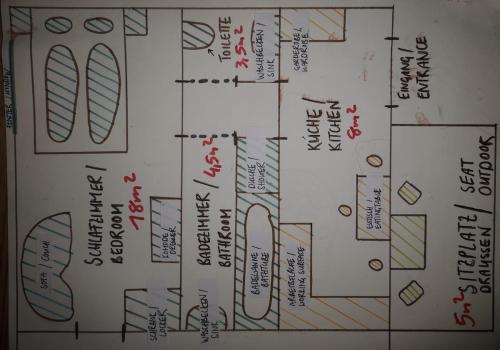 FENSTER / WINDOW
SOFA / COUCH
SCHLAFZIMMER /
BEDROOM
18m²
KOMODE /
DRESSER
SCHRANK /
LOCKER
TOILETTE
3,5m²
WASCHBECKEN /
SINK
BADEZIMMER /
BATHROOM
4,5m²
WASCHBECKEN /
SINK
DUSCHE /
SHOWER
BADEWANNE /
BATHTUBE
GARDEROBE /
WARDROBE
KÜCHE /
KITCHEN
8m²
ESSTISCH /
EATINGTABLE
ARBEITSFLÄCHE /
WORKING SURFACE
EINGANG /
ENTRANCE
SITZPLATZ / SEAT
DRAUSSEN / OUTDOOR
5m²